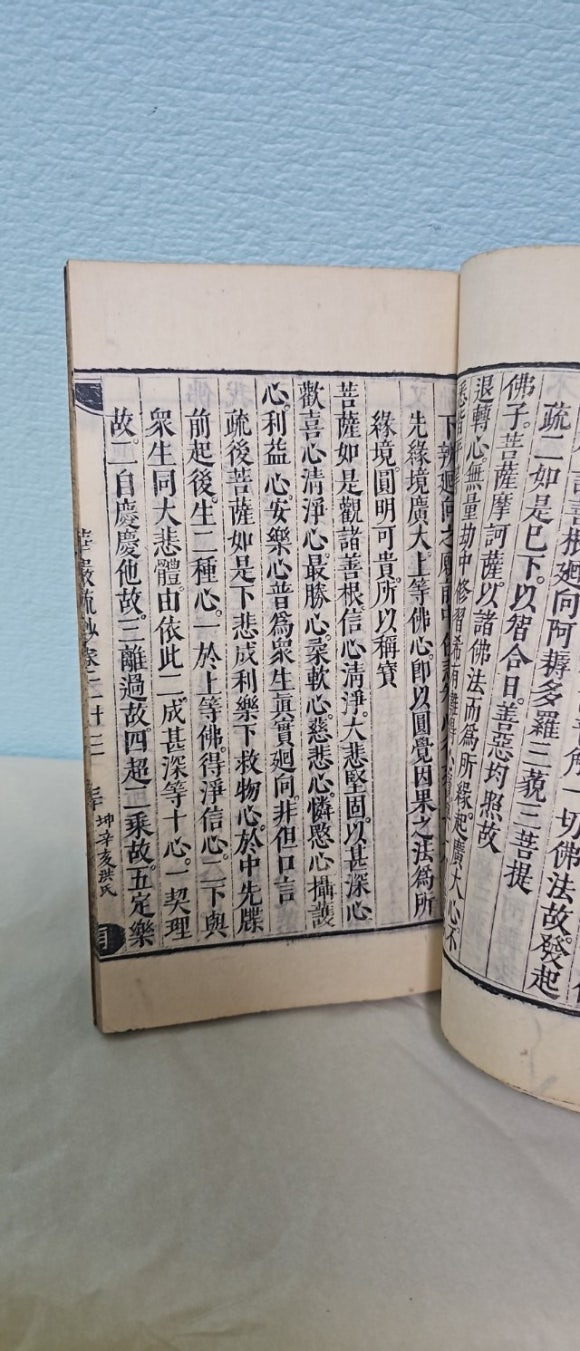 解一切佛法故發起
善根廻向阿耨多羅三藐三菩提
疏二如是已下。以智合日。善惡均照故
佛子。菩薩摩訶薩。以諸佛法而爲所緣。起廣大心不
退轉心。無量劫中修習希有難得
下辨廻向之
先緣境廣大。上等佛心。卽以圓覺因果之法爲所
緣境。圓明可貴。所以稱寳
菩薩如是觀諸善根。信心清淨。大悲堅固。以甚深心
歡喜心。清淨心。最勝心。柔軟心。慈悲心。憐愍心。攝護
心。利益心。安樂心。普爲衆生眞實廻向。非但口言
疏後菩薩如是下。悲成利樂。下救物心。於中先牒
前起後。生二種心。一於上等佛。得淨信心。二下與
衆生同大悲體。由依此二。成甚深等十心。一契理
故。二自慶慶他故。三離過故。四超二乘故。五定樂
華嚴疏鈔卷二十三
坤辛亥洪氏